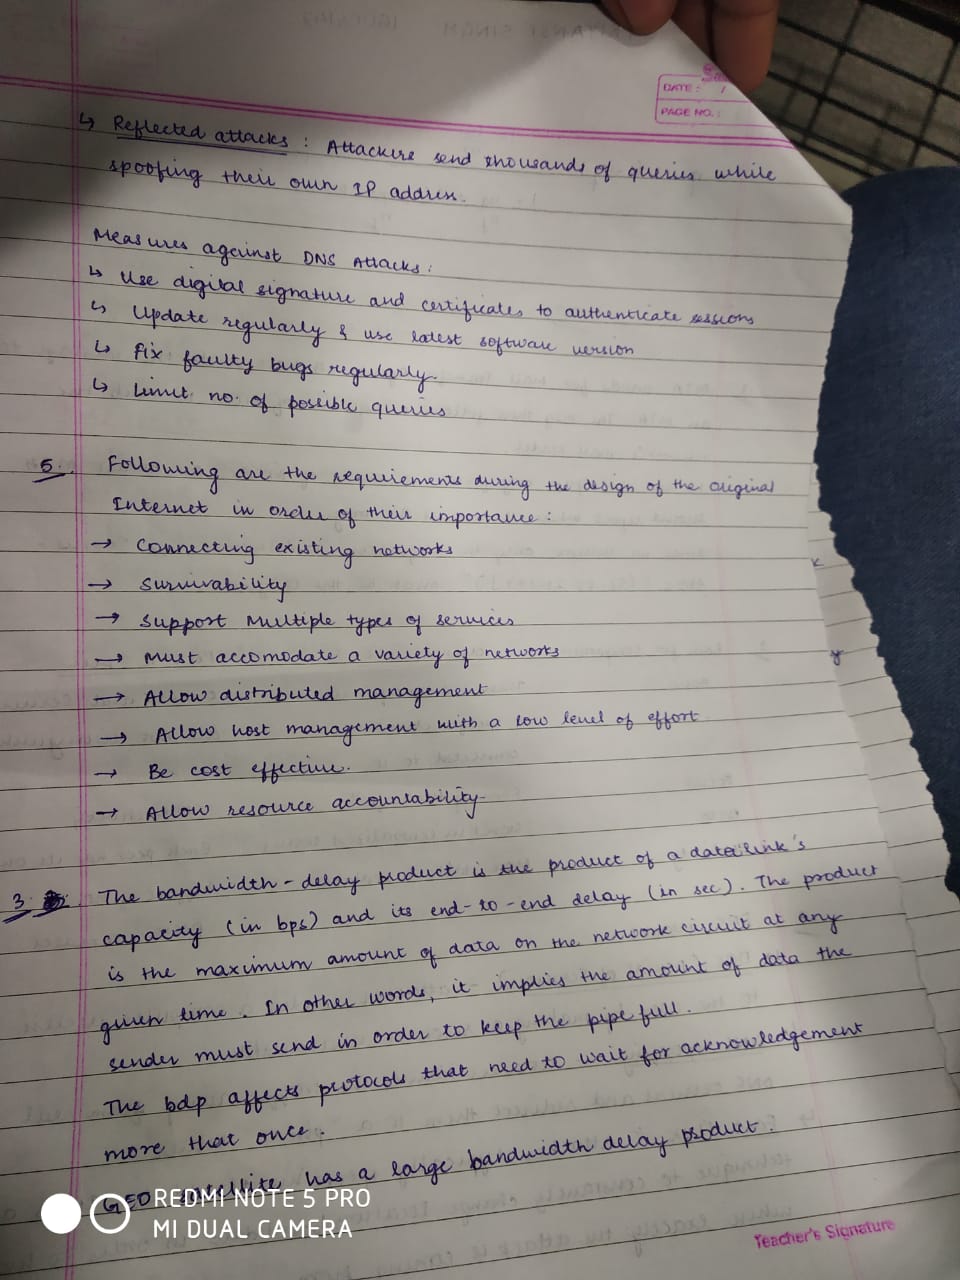 DATE: /
PAGE NO.:
↳ Reflected attacks : Attackers send thousands of queries while
spoofing their own IP address.
Measures against DNS Attacks:
↳ Use digital signature and certificates to authenticate sessions
↳ Update regularly & use latest software version
↳ Fix faulty bugs regularly.
↳ Limit no. of possible queries
5. Following are the requirements during the design of the original
Internet in order of their importance:
→ Connecting existing networks
→ Survivability
→ Support Multiple types of services
→ Must accomodate a variety of networks
→ Allow distributed management
→ Allow host management with a low level of effort
→ Be cost effective.
→ Allow resource accountability.
3. The bandwidth-delay product is the product of a data link's
capacity (in bps) and its end-to-end delay (in sec). The product
is the maximum amount of data on the network circuit at any
given time. In other words, it implies the amount of data the
sender must send in order to keep the pipe full.
The bdp affects protocols that need to wait for acknowledgement
more that once.
GEO satellite has a large bandwidth delay product.
REDMI NOTE 5 PRO
MI DUAL CAMERA
Teacher's Signature